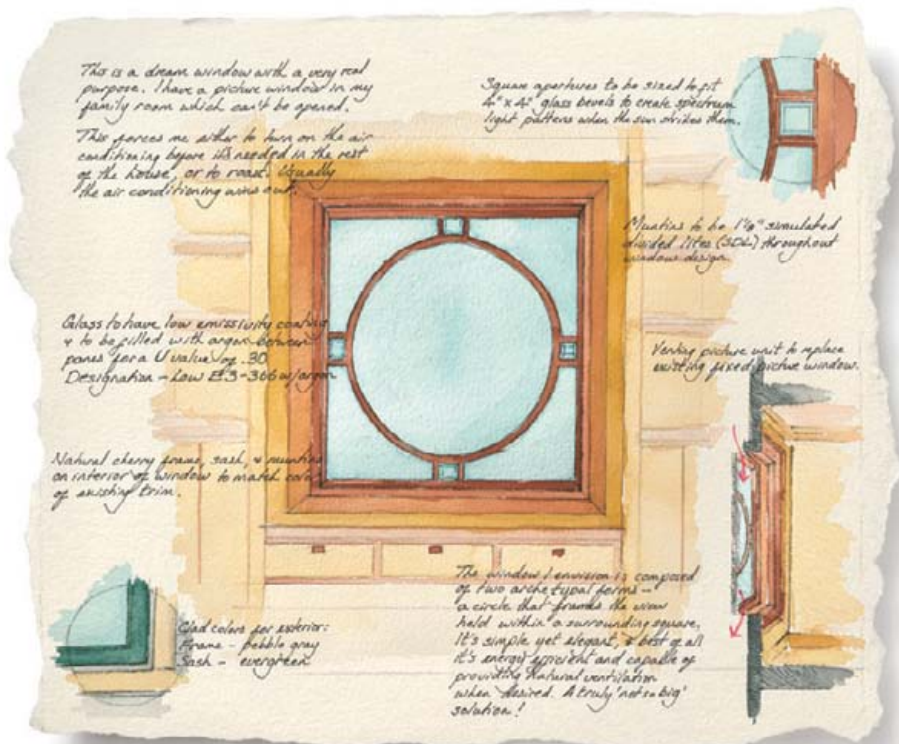 This is a dream window with a very real
purpose. I have a picture window in my
family room which can't be opened.
This forces me either to turn on the air
conditioning before it's needed in the rest
of the house, or to roast. Usually
the air conditioning wins out.
Square apertures to be sized to fit
4" x 4" glass bevels to create spectrum
light patterns when the sun strikes them.
Muntins to be 1⅛" simulated
divided lites (SDL) throughout
window design.
Glass to have low emissivity coating
& to be filled with argon between
panes for a U value of .30
Designation - Low E3-366 w/argon
Venting picture unit to replace
existing fixed picture window.
Natural cherry frame, sash, & muntins
on interior of window to match color
of existing trim.
Clad colors for exterior:
Frame - pebble gray
Sash - evergreen
The window I envision is composed
of two archetypal forms -
a circle that frames the view
held within a surrounding square.
It's simple yet elegant, & best of all
it's energy efficient and capable of
providing natural ventilation
when desired. A truly 'not so big'
solution!